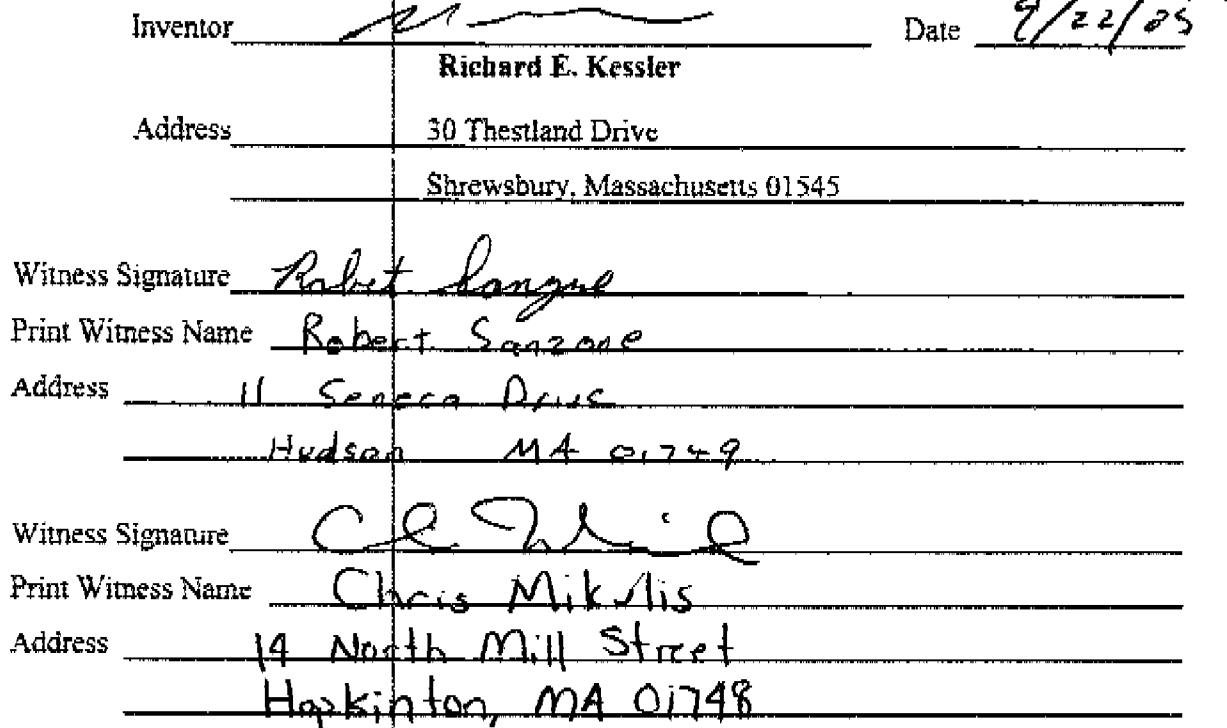 Inventor Date 9/22/05
Richard E. Kessler
Address 30 Thestland Drive
Shrewsbury, Massachusetts 01545
Witness Signature Robert Sanzone
Print Witness Name Robert Sanzone
Address 11 Seneca Drive
Hudson MA 01749
Witness Signature
Print Witness Name Chris Mikulis
Address 14 North Mill Street
Hopkinton, MA 01748